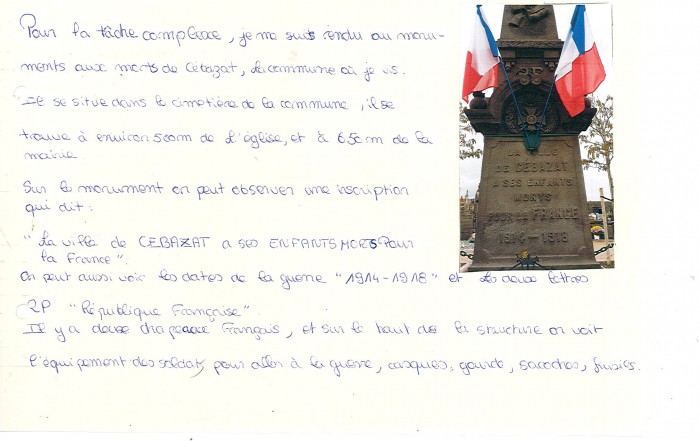 Pour la tâche complexe, je me suis rendu au monu-
ments aux morts de Cébazat, la commune où je vis.
Il se situe dans le cimetière de la commune, il se
trouve à environ 500m de l'église, et à 650m de la
mairie
Sur le monument on peut observer une inscription
qui dit :
"La ville de CEBAZAT a ses ENFANTS MORS Pour
la France".
On peut aussi voir les dates de la guerre "1914-1918" et les deux lettres
RP "République Française".
Il y a deux drapeaux Français, et sur le haut de la structure on voit
l'équipement des soldats, pour aller à la guerre, casques, gourde, sacoches, fusils.
LA VILLE
DE CEBAZAT
A SES ENFANTS
MORTS
POUR LA FRANCE
1914-1918